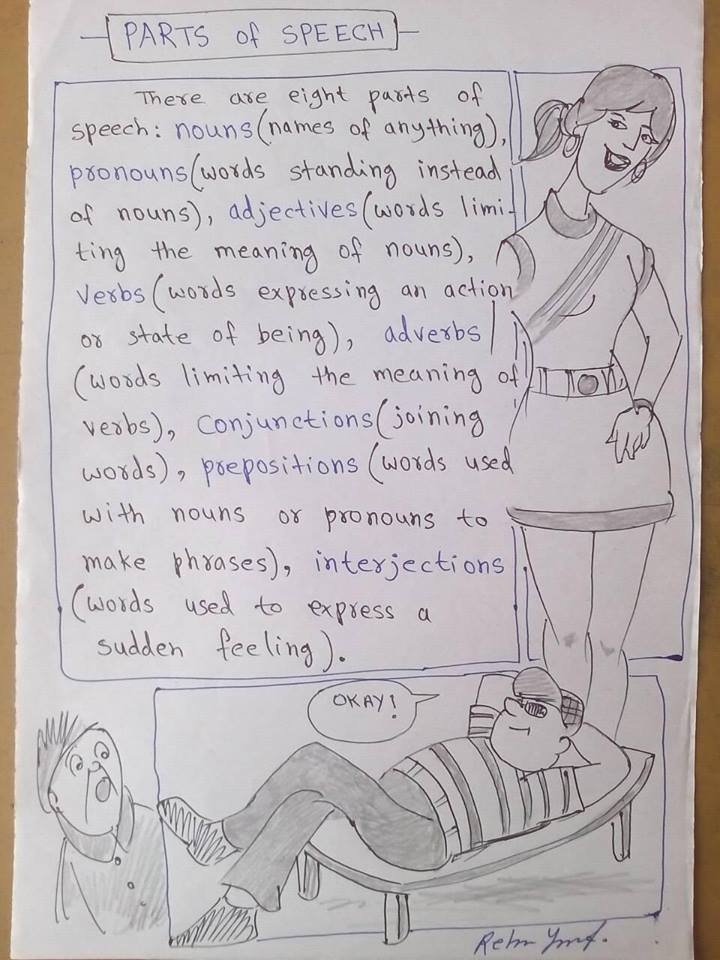 PARTS of SPEECH
There are eight parts of
speech: nouns (names of anything),
pronouns (words standing instead
of nouns), adjectives (words limi-
ting the meaning of nouns),
verbs (words expressing an action
or state of being), adverbs
(words limiting the meaning of
verbs), conjunctions (joining
words), prepositions (words used
with nouns or pronouns to
make phrases), interjections
(words used to express a
sudden feeling).
OKAY!